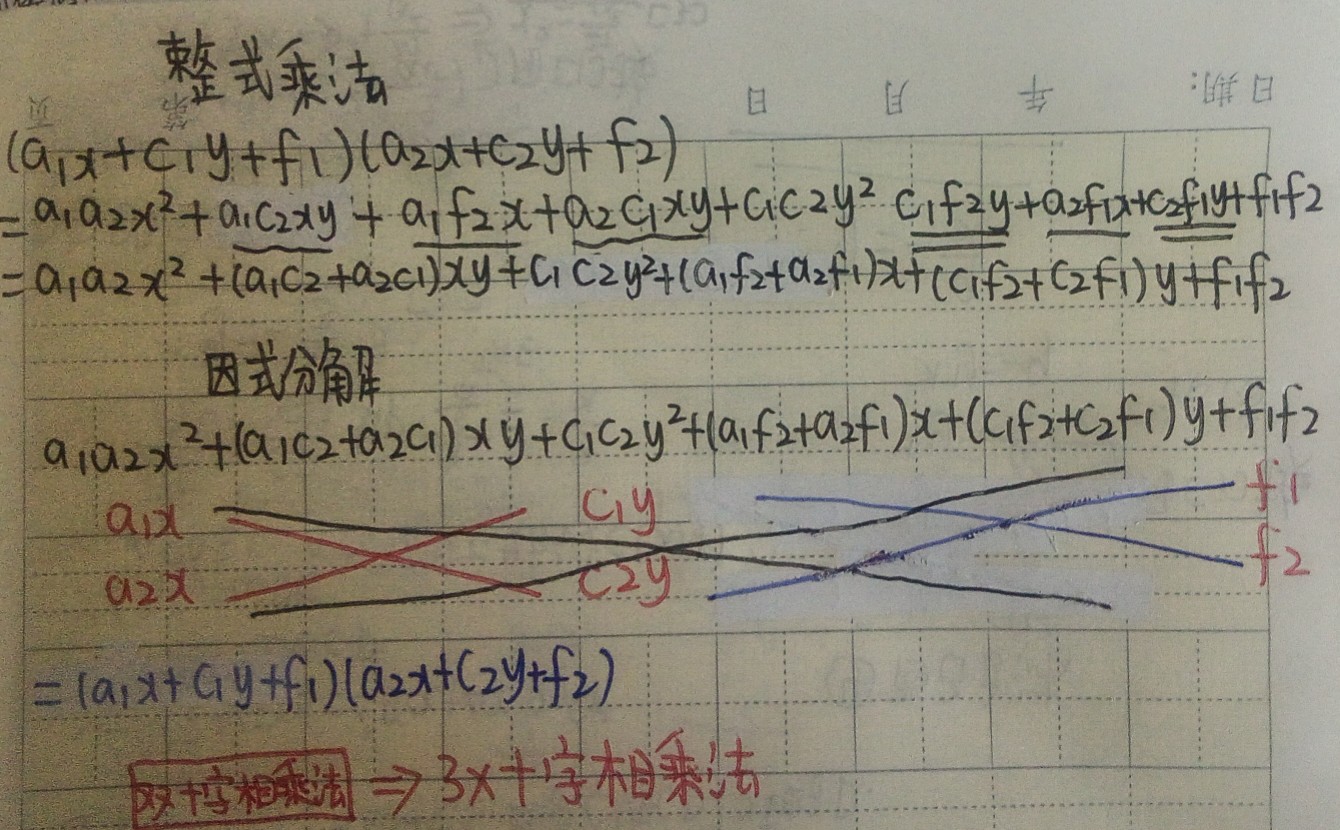 整式乘法
日期: 年 月 日 第 页
(a₁x+c₁y+f₁)(a₂x+c₂y+f₂)
=a₁a₂x²+a₁c₂xy+a₁f₂x+a₂c₁xy+c₁c₂y² c₁f₂y+a₂f₁x+c₂f₁y+f₁f₂
=a₁a₂x²+(a₁c₂+a₂c₁)xy+c₁c₂y²+(a₁f₂+a₂f₁)x+(c₁f₂+c₂f₁)y+f₁f₂
因式分解
a₁a₂x²+(a₁c₂+a₂c₁)xy+c₁c₂y²+(a₁f₂+a₂f₁)x+(c₁f₂+c₂f₁)y+f₁f₂
a₁x c₁y f₁
a₂x c₂y f₂
=(a₁x+c₁y+f₁)(a₂x+c₂y+f₂)
双十字相乘法 ⇒ 3x十字相乘法